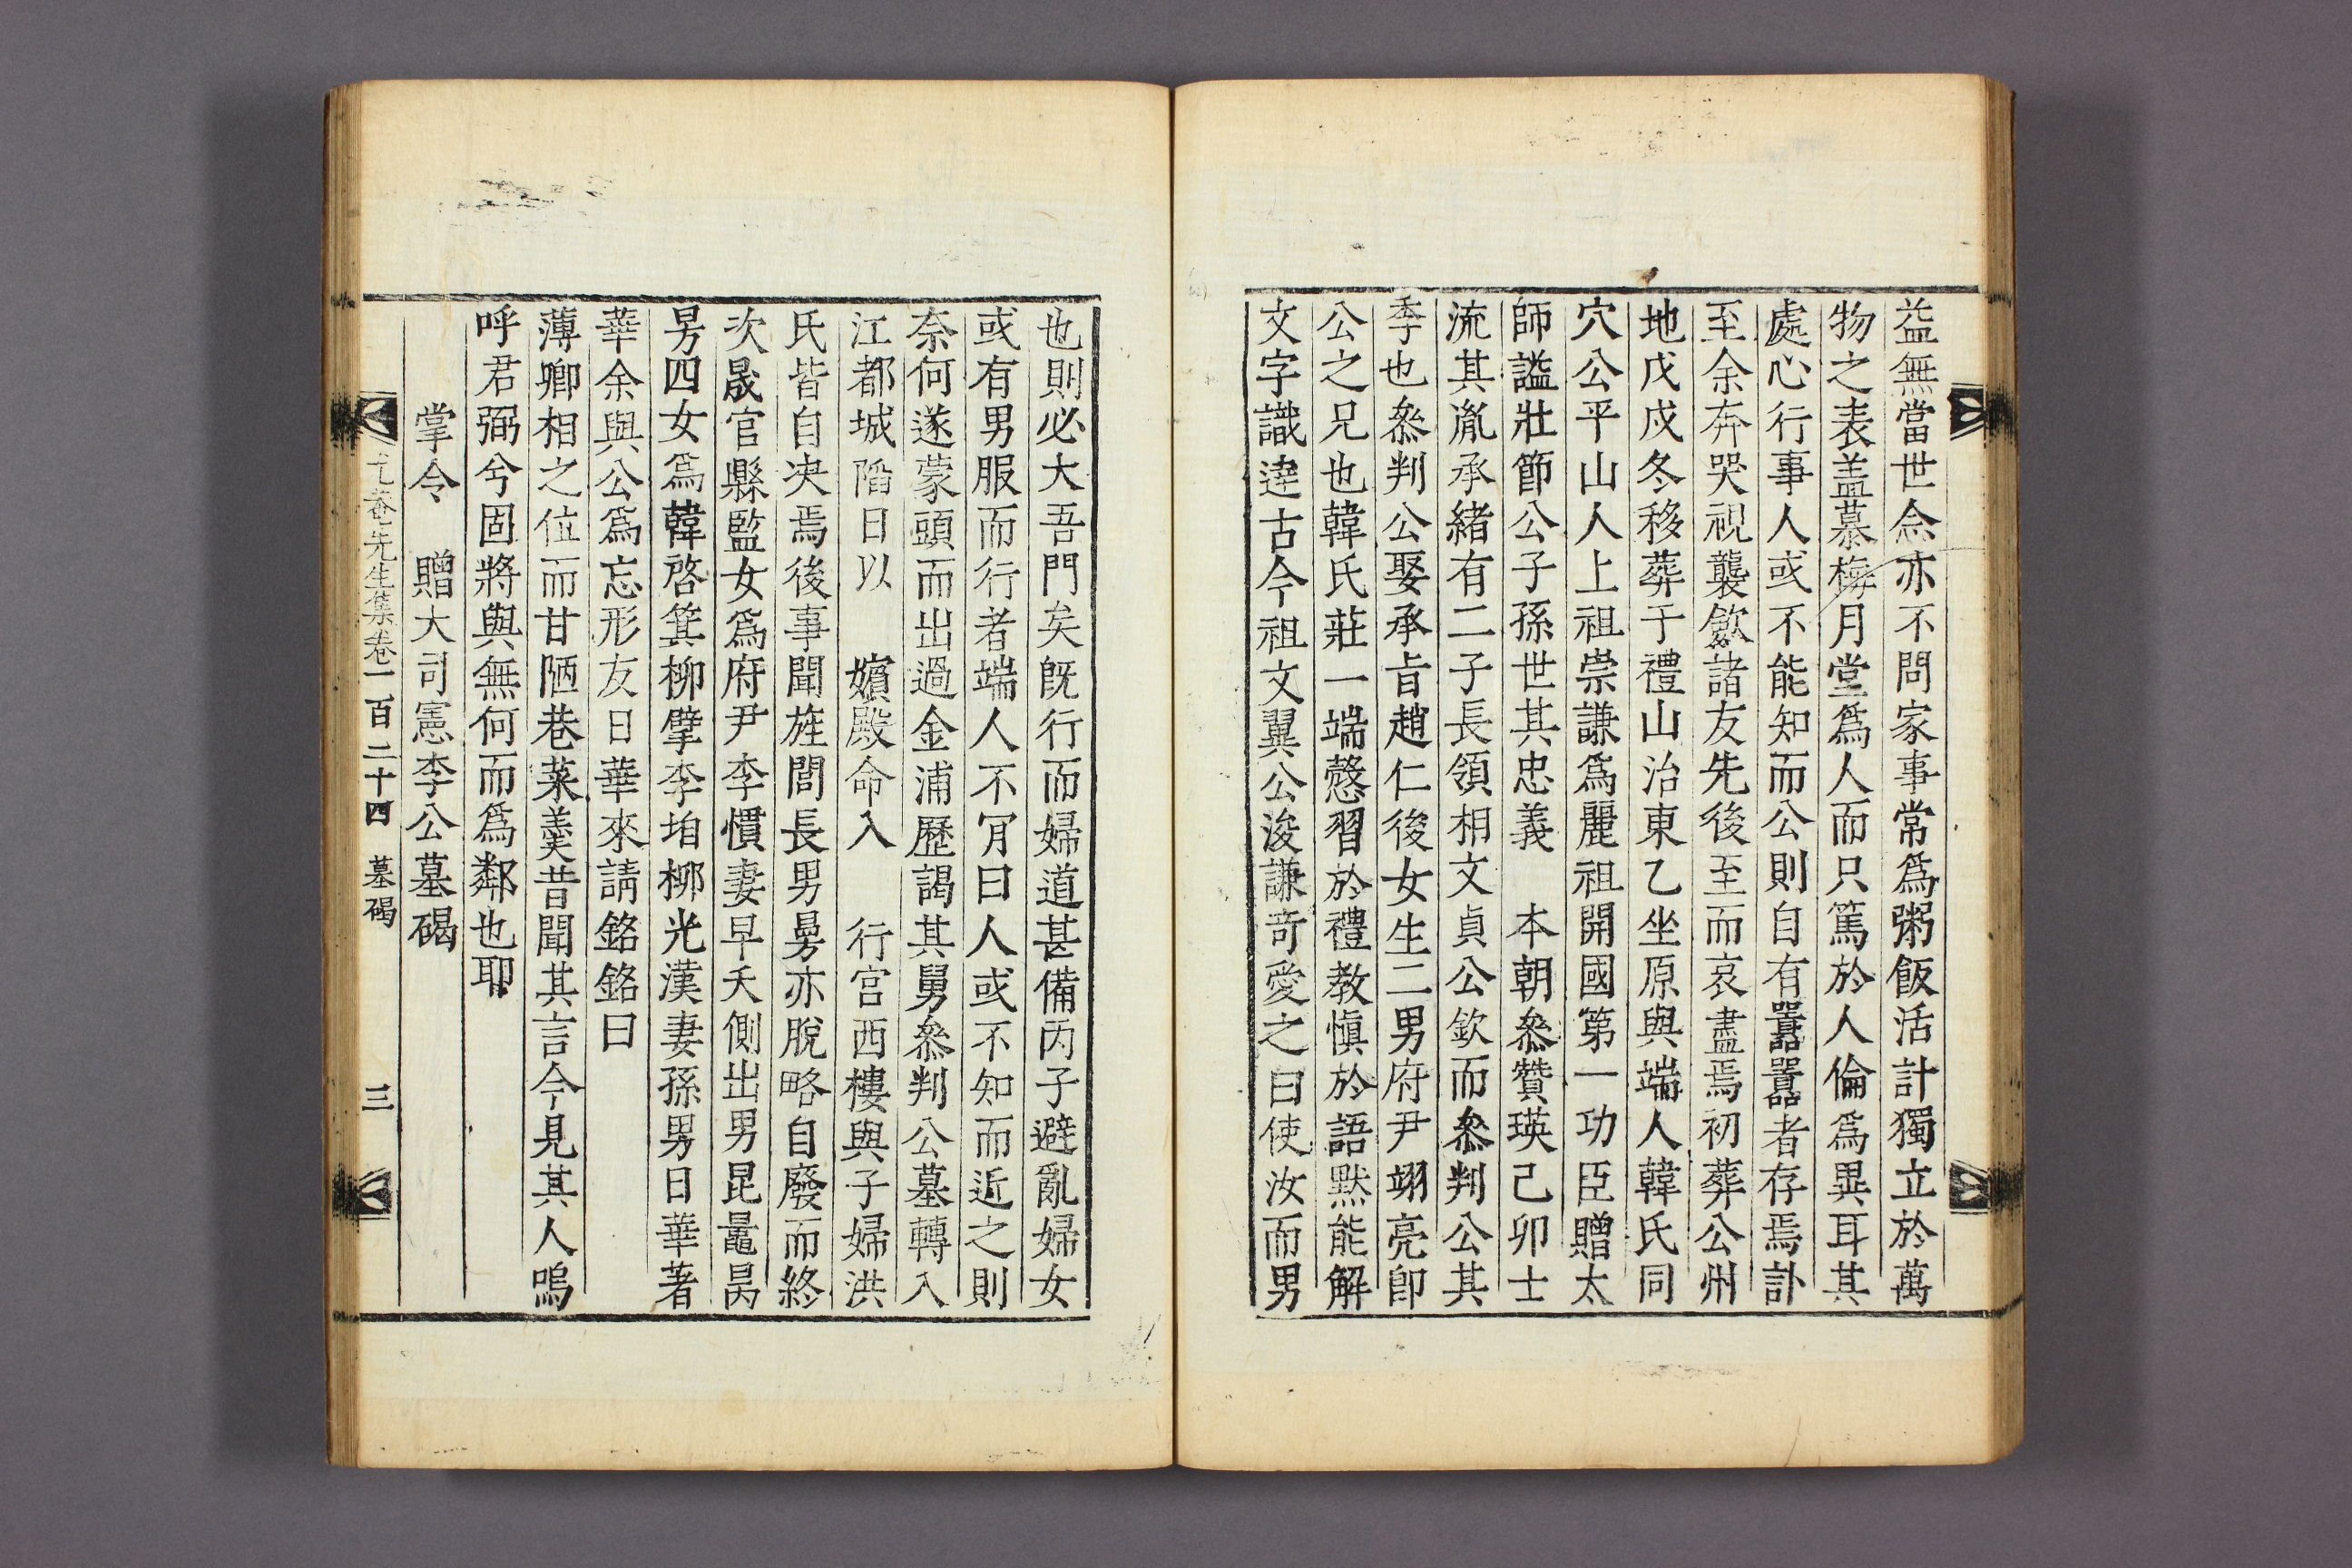 益無當世念亦不問家事常爲粥飯活計獨立於萬
物之表盖慕梅月堂爲人而只篤於人倫爲異耳其
處心行事人或不能知而公則自有囂囂者存焉訃
至余奔哭視襲斂諸友先後至而哀盡焉初葬公州
地戊戌冬移葬于禮山治東乙坐原與端人韓氏同
穴公平山人上祖崇謙爲麗祖開國第一功臣贈太
師謚壯節公子孫世其忠義 本朝叅贊瑛己卯士
流其胤承緖有二子長領相文貞公欽而叅判公其
季也叅判公娶承旨趙仁後女生二男府尹翊亮卽
公之兄也韓氏莊一端慤習於禮教愼於語默能解
文字識達古今祖文翼公浚謙奇愛之曰使汝而男
也則必大吾門矣旣行而婦道甚備丙子避亂婦女
或有男服而行者端人不肎曰人或不知而近之則
奈何遂蒙頭而出過金浦歷謁其舅叅判公墓轉入
江都城陷日以 嬪殿命入 行宮西樓與子婦洪
氏皆自决焉後事聞旌閭長男曓亦脫略自廢而終
次晟官縣監女爲府尹李慣妻早夭側出男昆鼂昺
男四女爲韓啓箕柳擘李垍柳光漢妻孫男日華著
華余與公爲忘形友日華來請銘銘曰
薄卿相之位而甘陋巷菜羹昔聞其言今見其人嗚
呼君弼兮固將與無何而爲鄰也耶
掌令 贈大司憲李公墓碣
尤菴先生集卷一百二十四 墓碣 三